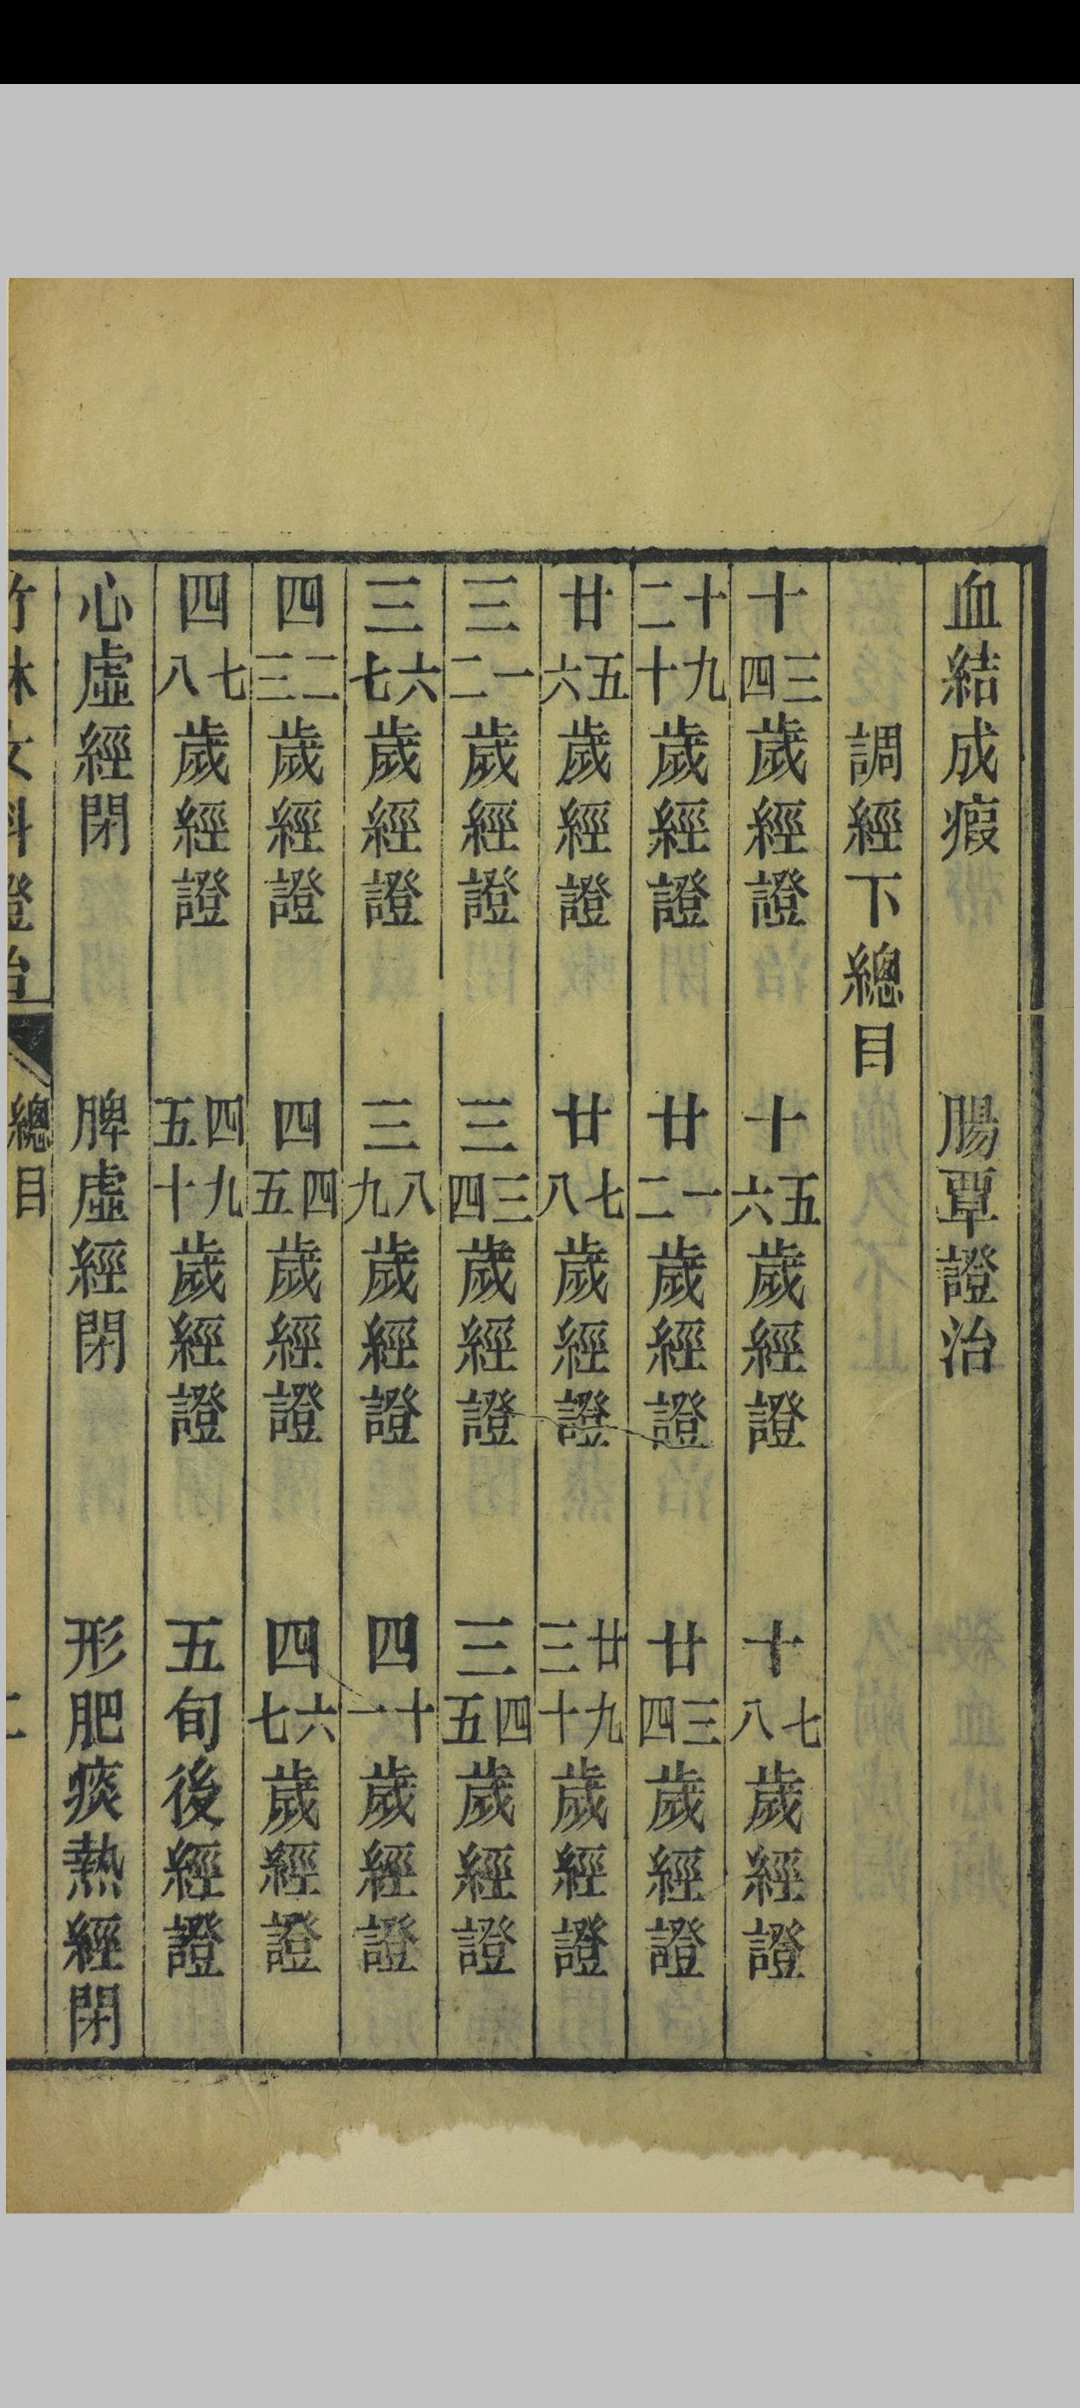 血結成瘕　腸覃證治
調經下總目
十三四歲經證　十五六歲經證　十七八歲經證
十九二十歲經證　廿一二歲經證　廿三四歲經證
廿五六歲經證　廿七八歲經證　廿九三十歲經證
三一二歲經證　三三四歲經證　三四五歲經證
三六七歲經證　三八九歲經證　四十一歲經證
四二三歲經證　四四五歲經證　四六七歲經證
四七八歲經證　四九五十歲經證　五旬後經證
心虛經閉　脾虛經閉　形肥痰熱經閉
竹林女科證治　總目